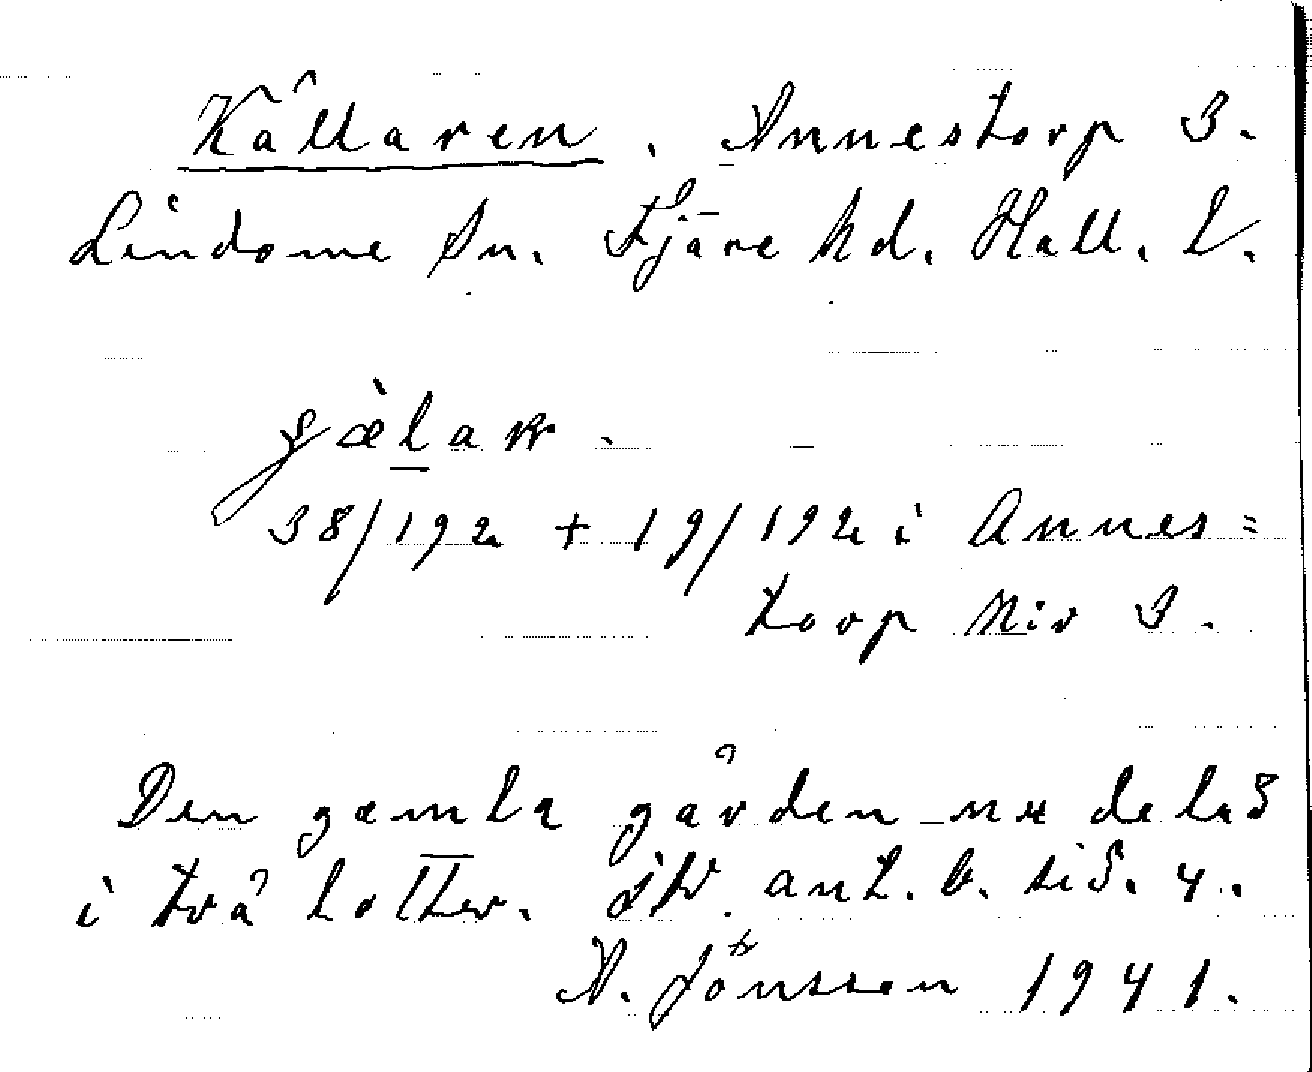 Källaren. Annestorp 3.
Lindome Sn. Fjäre hd. Hall. L.
38/192 + 19/192 i Annes=
torp N:o 3.
Den gamla gården nu delad
i två lotter. ant. b. sid. 4.
A. Jönsson 1941.